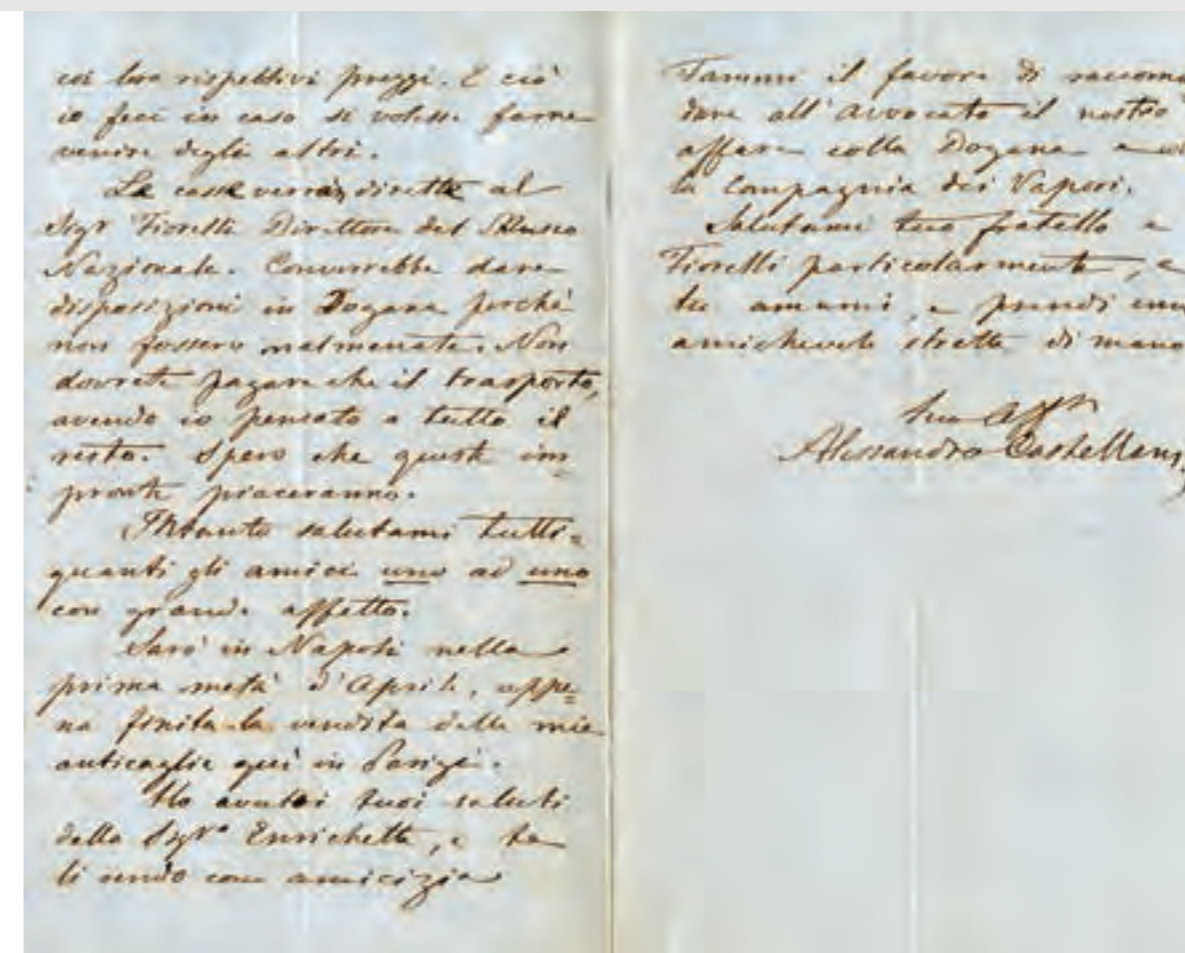 coi loro rispettivi prezzi. E ciò
io feci in caso si volesse farne
venire degli altri.
Le casse verran dirette al
Sigr Fiorelli Direttore del Museo
Nazionale. Converrebbe dare
disposizioni in Dogana perchè
non fossero malmenate. Non
dovrete pagare che il trasporto,
avendo io pensato a tutto il
resto. Spero che queste im=
pronte piaceranno.
Intanto salutami tutti=
quanti gli amici uno ad uno
con grande affetto.
Sarò in Napoli nella
prima metà d'Aprile, appe=
na finita la vendita delle mie
anticaglie quì in Parigi.
Ho avuto i tuoi saluti
dalla Sigra Enrichetta, e te
li rendo con amicizia
Fammi il favore di raccoman
dare all'avvocato il nostro
affare colla Dogana e
la Compagnia dei Vapori.
Salutami tuo fratello e
Fiorelli particolarmente, e
tu amami, e prendi una
amichevole stretta di mano
tuo affmo
Alessandro Castellani